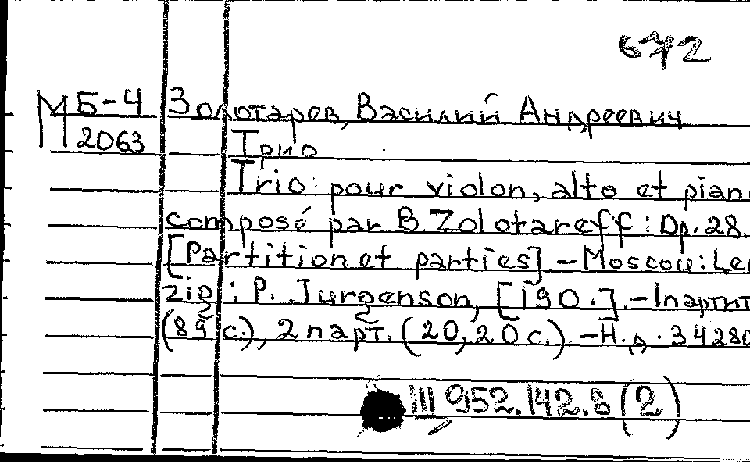 М Б-4
2063
Золотарев, Василий Андреевич
Трио
Trio pour violon, alto et pian
composé par B Zolotareff : Op. 28.
[Partition et parties] - Moscou: Lei
zig : P. Jurgenson, [190.]. - 1 парти
(89 с.), 2 парт. (20, 20 с.) - Н.д. 34280
III 952.142.8 (2)